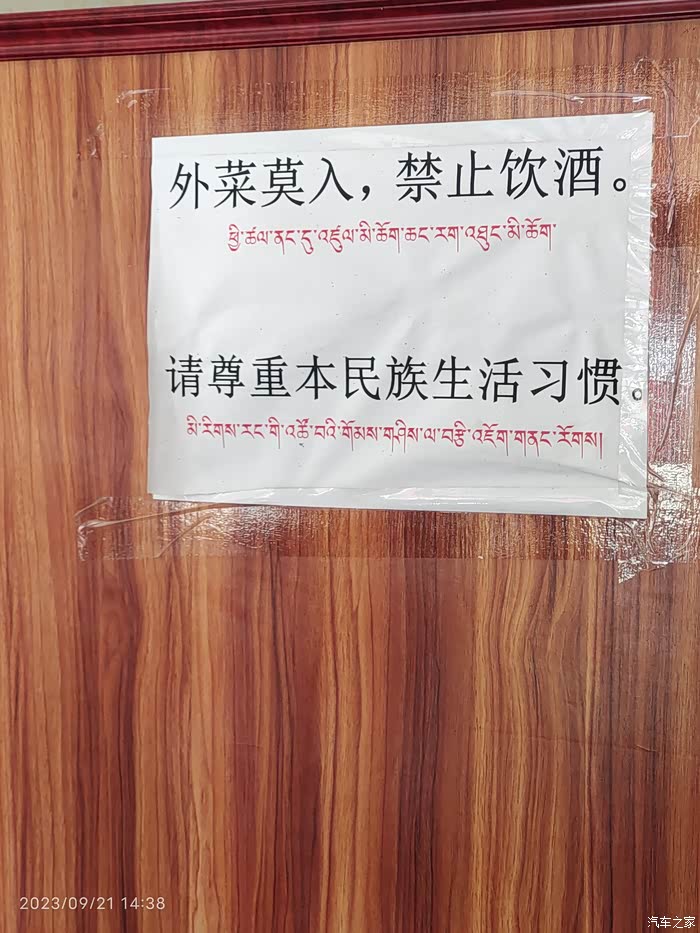 外菜莫入，禁止饮酒。
ཕྱི་ཚལ་ནང་དུ་འཛུལ་མི་ཆོག་ཆང་རག་འཐུང་མི་ཆོག་
请尊重本民族生活习惯。
མི་རིགས་རང་གི་འཚོ་བའི་གོམས་གཤིས་ལ་བརྩི་འཇོག་གནང་རོགས།
2023/09/21 14:38
汽车之家